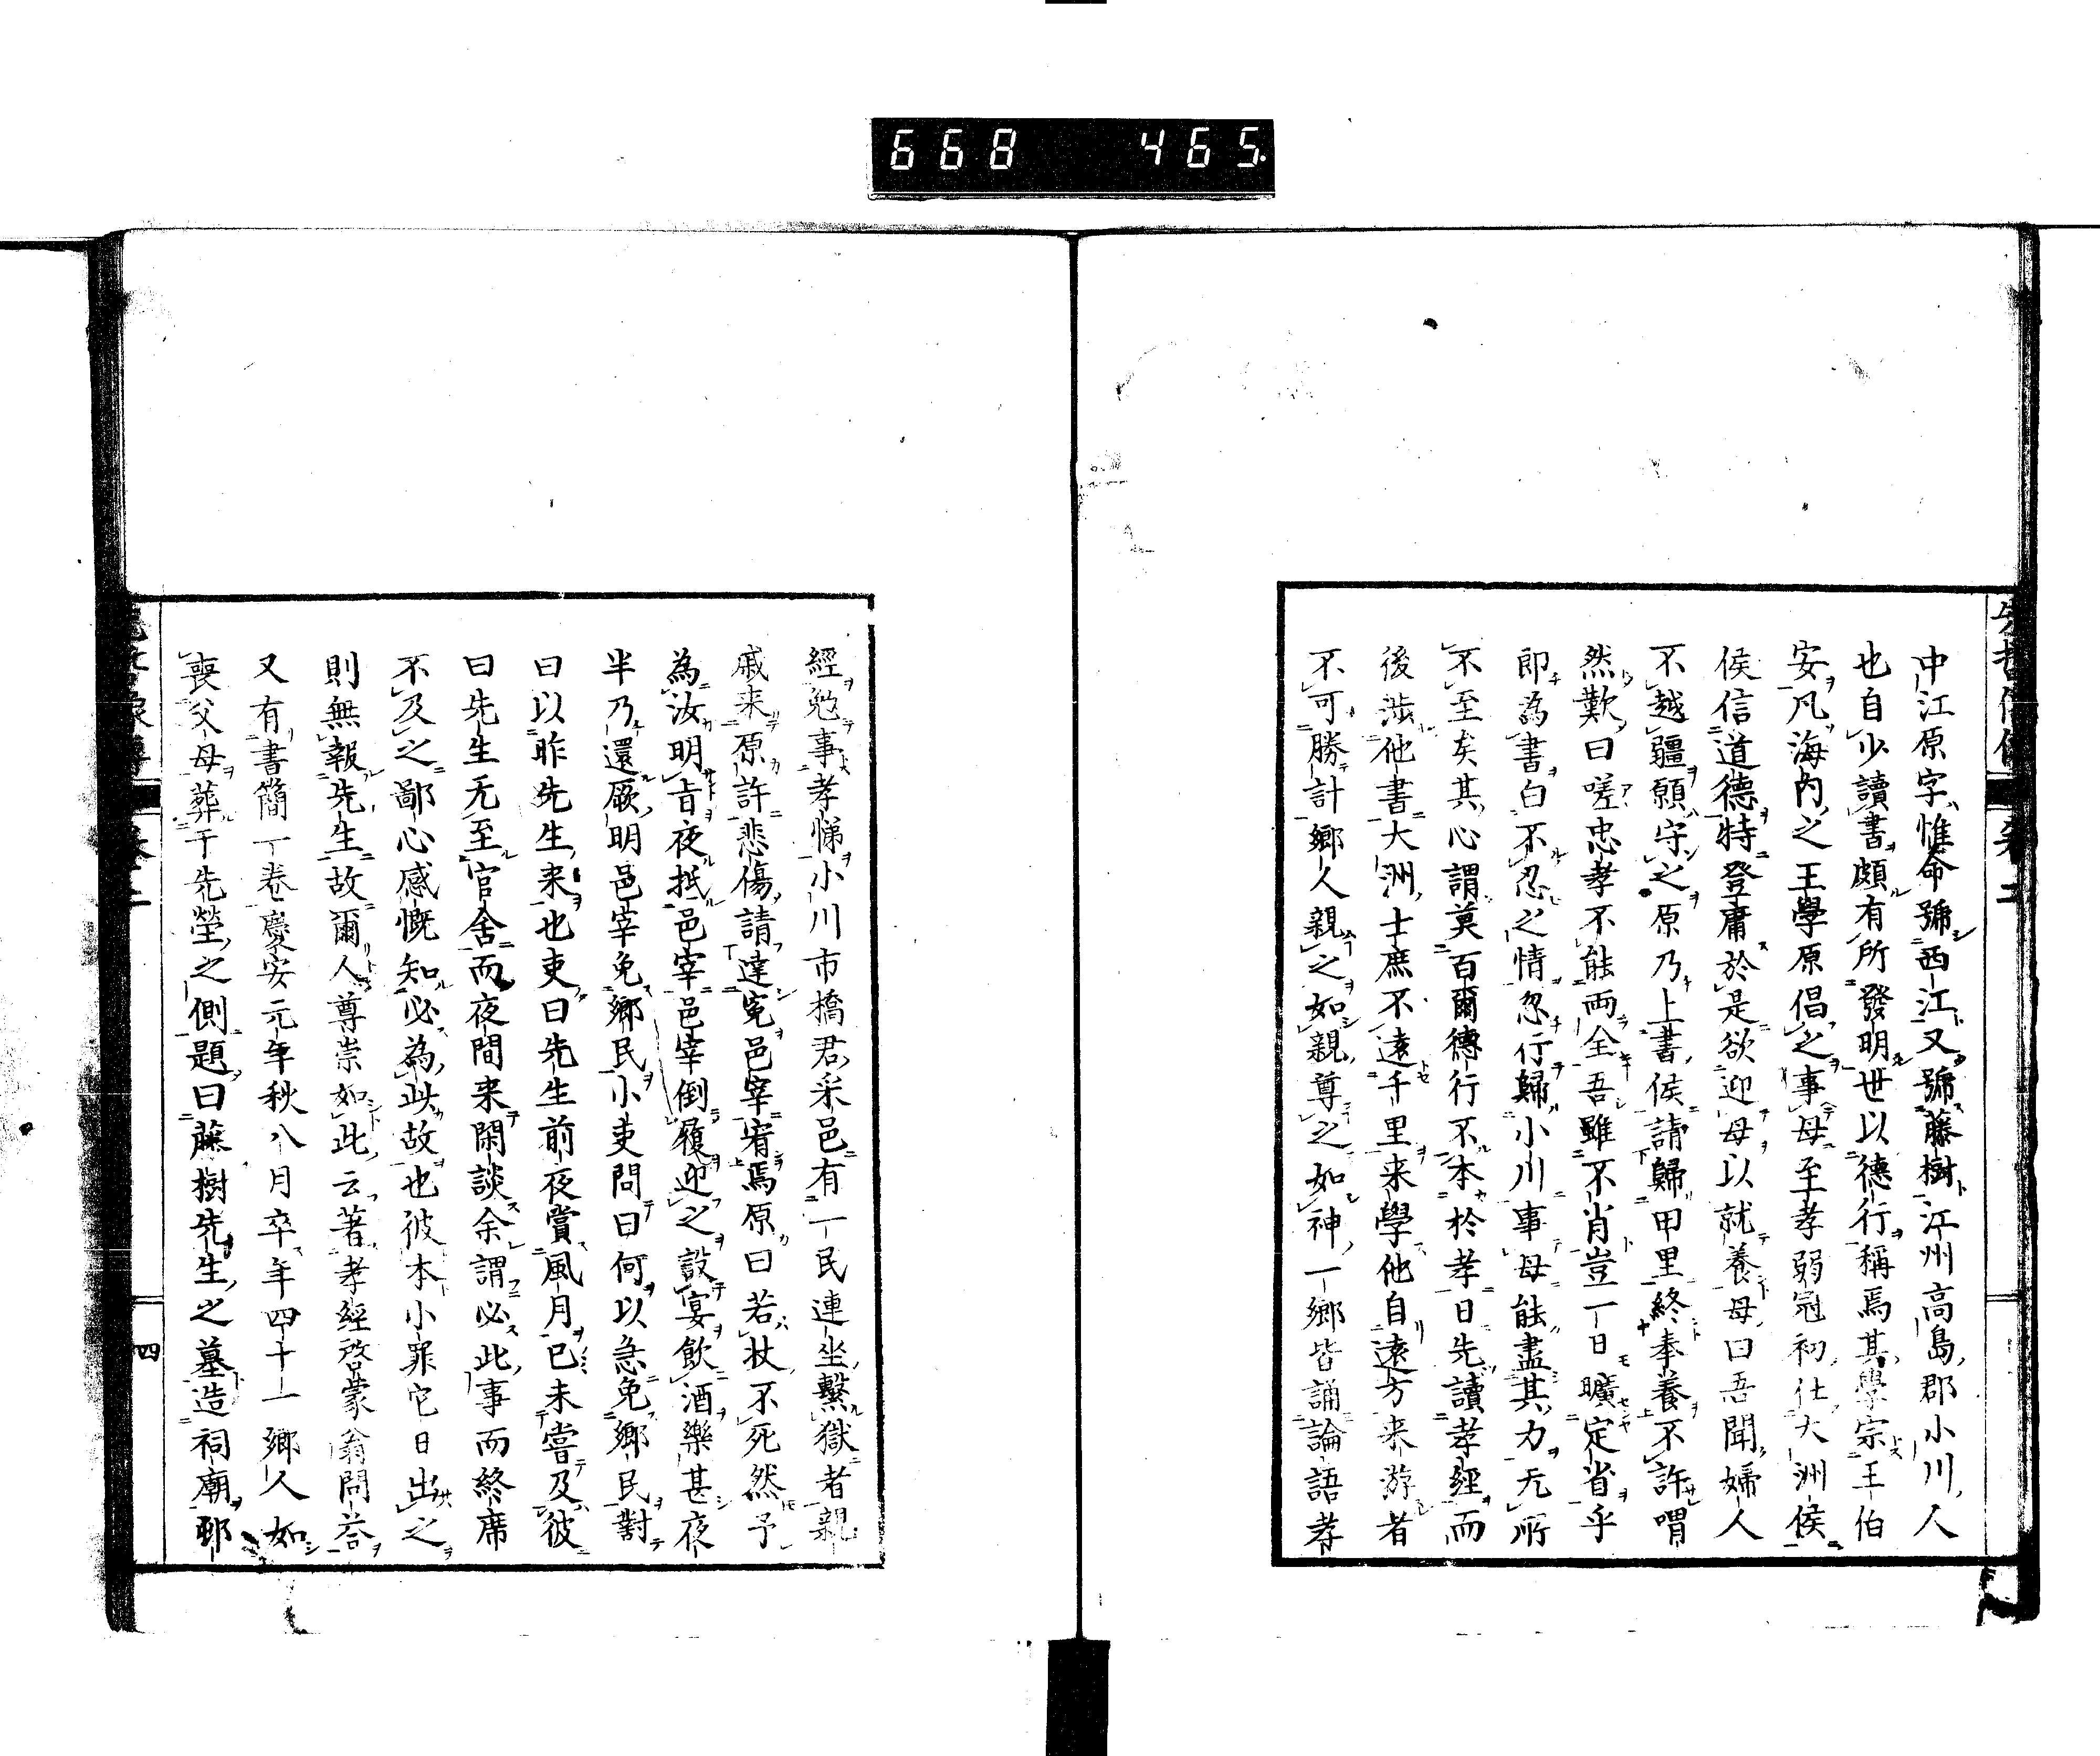 668 465.
中江原字惟命號西江又號藤樹江州高島郡小川人
也自少讀書頗有所發明世以德行稱焉其學宗王伯
安凡海內之王學原倡之事母至孝弱冠初仕大洲侯
侯信道德特登庸於是欲迎母以就養母曰吾聞婦人
不越疆願守之原乃上書侯請歸田里終奉養不許喟
然歎曰嗟忠孝不能兩全吾雖不肖豈一日曠定省乎
即為書白不忍之情忽行歸小川事母能盡其力无所
不至矣其心謂莫百爾德行不本於孝日先讀孝經而
後涉他書大洲士庶不遠千里来學他自遠方来游者
不可勝計鄉人親之如親尊之如神一鄉皆誦論語孝
經勉事孝悌小川市橋君采邑有一民連坐繫獄者親
戚来原許悲傷請達寃邑宰宥焉原曰若杖不死然予
為汝明旨夜抵邑宰邑宰倒履迎之設宴飲酒樂甚夜
半乃還厥明邑宰免鄉民小吏問曰何以急免鄉民對
曰以昨先生来也吏曰先生前夜賞風月已未嘗及彼
曰先生无至官舍而夜間来閑談余謂必此事而終席
不及之鄙心感慨知必為此故也彼本小罪它日出之
則無報先生故爾人尊崇如此云著孝經啓蒙翁問答
又有書簡一卷慶安元年秋八月卒年四十一鄉人如
喪父母葬于先塋之側題曰藤樹先生之墓造祠廟鄂
四